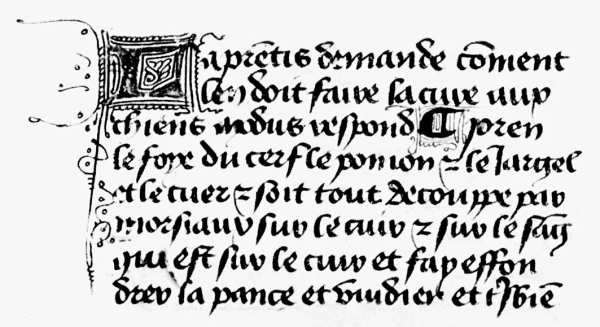 Laprẽtis demande cõment
len doit faire la cuire aux
chiens modus respond ¶ Pren
le foye du cerf le pomon ⁊ le Jargel
et le cuer ⁊ soit tout decouppe par
morsiaux sur le cuir ⁊ sur le sãg
qui est sur le cuir et fay effon
drer la pance et vuidier et tsbiẽ